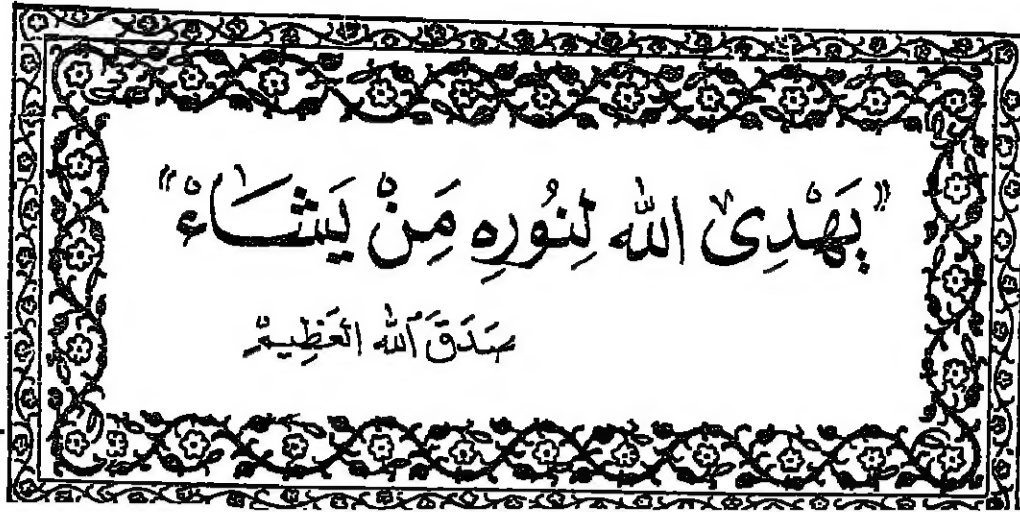 "يَهْدِى الله لِنُورِهِ مِنْ يَشَاءْ"
صَدَقَ الله العَظِيمْ